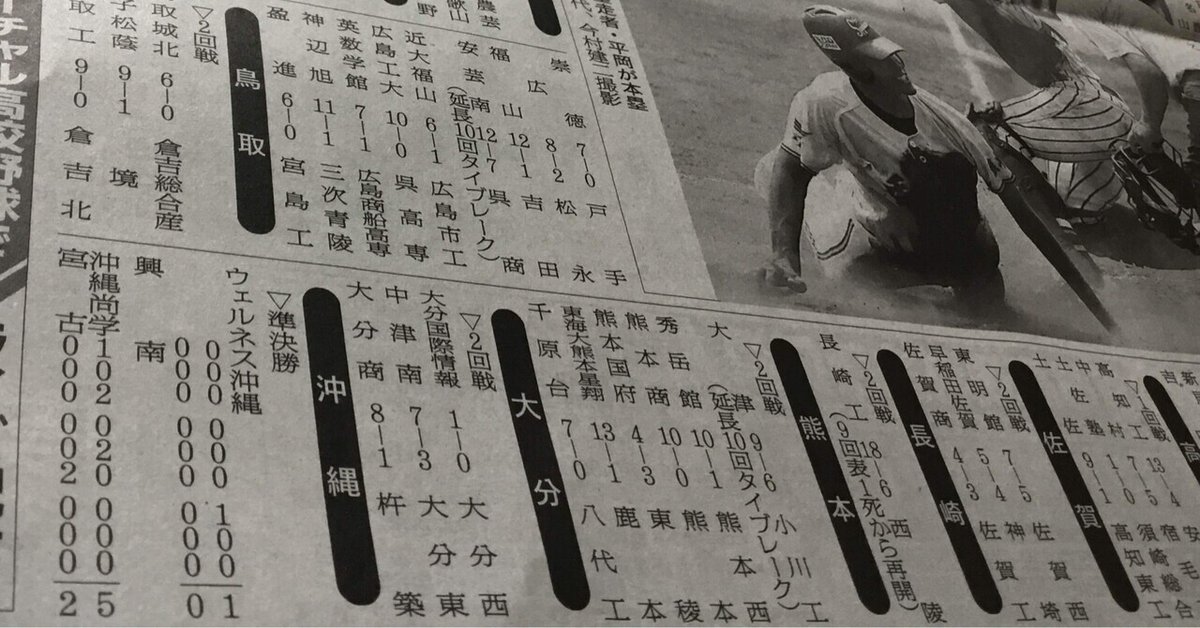 走者・平岡が本塁
代、今村建二撮影
崇徳 7―0 戸手
広 8―2 松永
福山 12―1 吉田
安芸南 12―7 呉商
(延長10回タイブレーク)
近大福山 6―1 広島市工
広島工大 10―0 呉高専
英数学館 7―1 広島商船高専
神辺旭 11―1 三次青陵
盈進 6―0 宮島工
鳥取
▽2回戦
取城北 6―0 倉吉総合産
子松蔭 9―1 境
取工 9―0 倉吉北
ーチャル高校野球で
▽1回戦
土佐 9―1 高知東工
佐賀
▽2回戦
東明館 7―5 佐賀西
早稲田佐賀 5―4 神埼
佐賀商 4―3 佐賀工
長崎
▽2回戦
長崎工 18―6 西陵
(9回表1死から再開)
熊本
▽2回戦
大津 9―6 小川工
(延長10回タイブレーク)
秀岳館 10―1 熊本西
熊本商 10―0 熊本
熊本国府 4―3 東稜
東海大熊本星翔 13―1 鹿本
千原台 7―0 八代工
大分
▽2回戦
大分国際情報 1―0 大分西
中津南 7―3 大分東
大分商 8―1 杵築
沖縄
▽準決勝
ウェルネス沖縄
000 000 100 1
000 000 000 0
興南
沖縄尚学 102 020 000 5
宮古 000 002 000 2